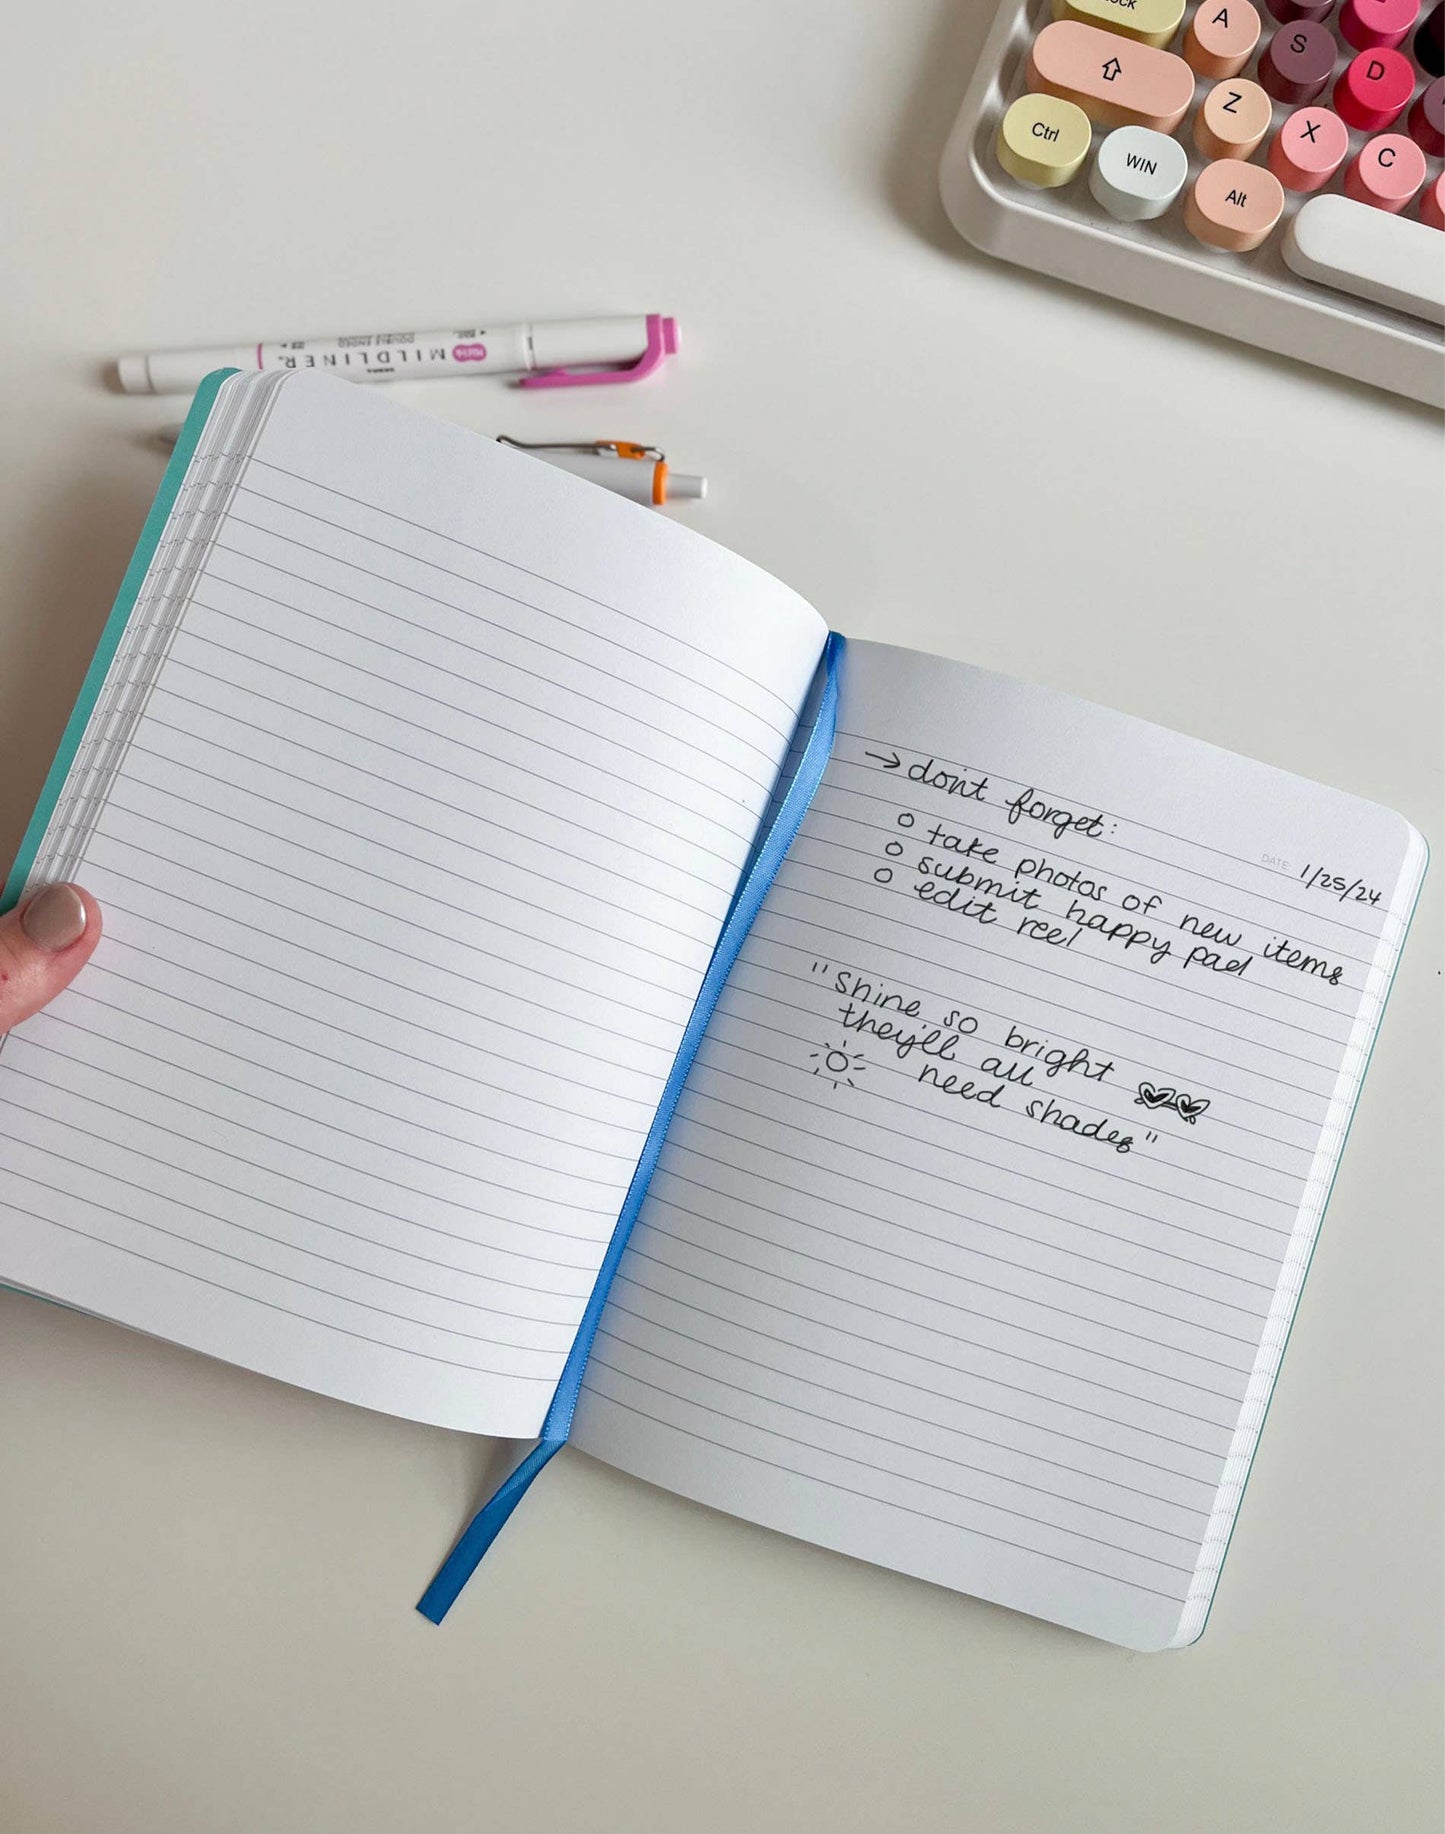 LOCK
A
S
D
Z
X
C
Ctrl
WIN
Alt
MILDLINER
DOUBLE ENDED
ZEBRA
DATE: 1/25/24
→ don't forget:
○ take photos of new items
○ submit happy pad
○ edit reel
"Shine so bright
they'll all
need shades"